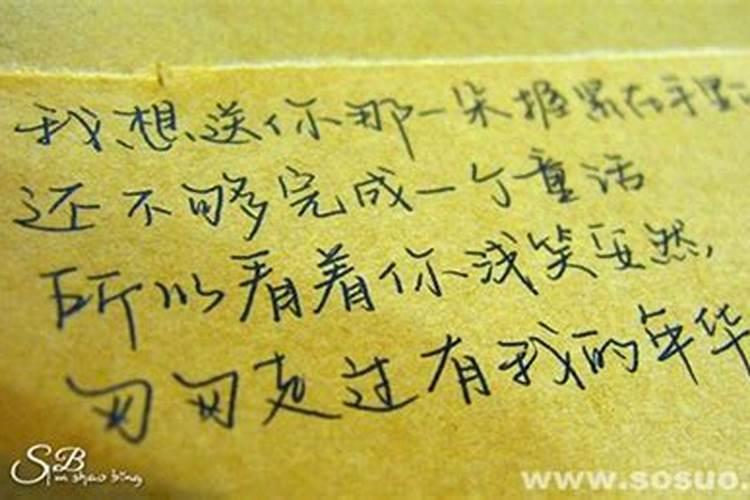 我想送你那一朵握紧在手里
还不够完成一个童话
所以看着你浅笑妥然,
匆匆走过有我的年华
SB
Sun shao bing
www.sosuo.